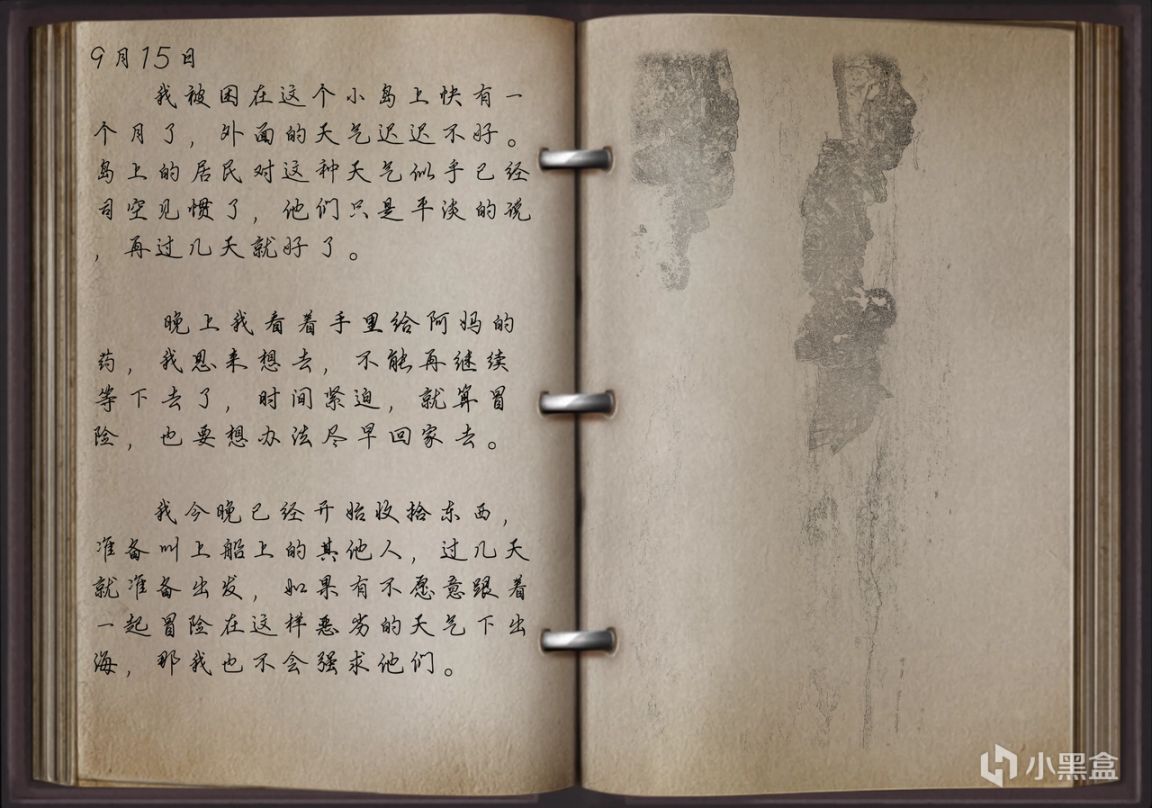 9月15日
我被困在这个小岛上快有一
个月了，外面的天气迟迟不好。
岛上的居民对这种天气似乎已经
司空见惯了，他们只是平淡的说
，再过几天就好了。
晚上我看着手里给阿妈的
药，我思来想去，不能再继续
等下去了，时间紧迫，就算冒
险，也要想办法尽早回家去。
我今晚已经开始收拾东西，
准备叫上船上的其他人，过几天
就准备出发，如果有不愿意跟着
一起冒险在这样恶劣的天气下出
海，那我也不会强求他们。
小黑盒